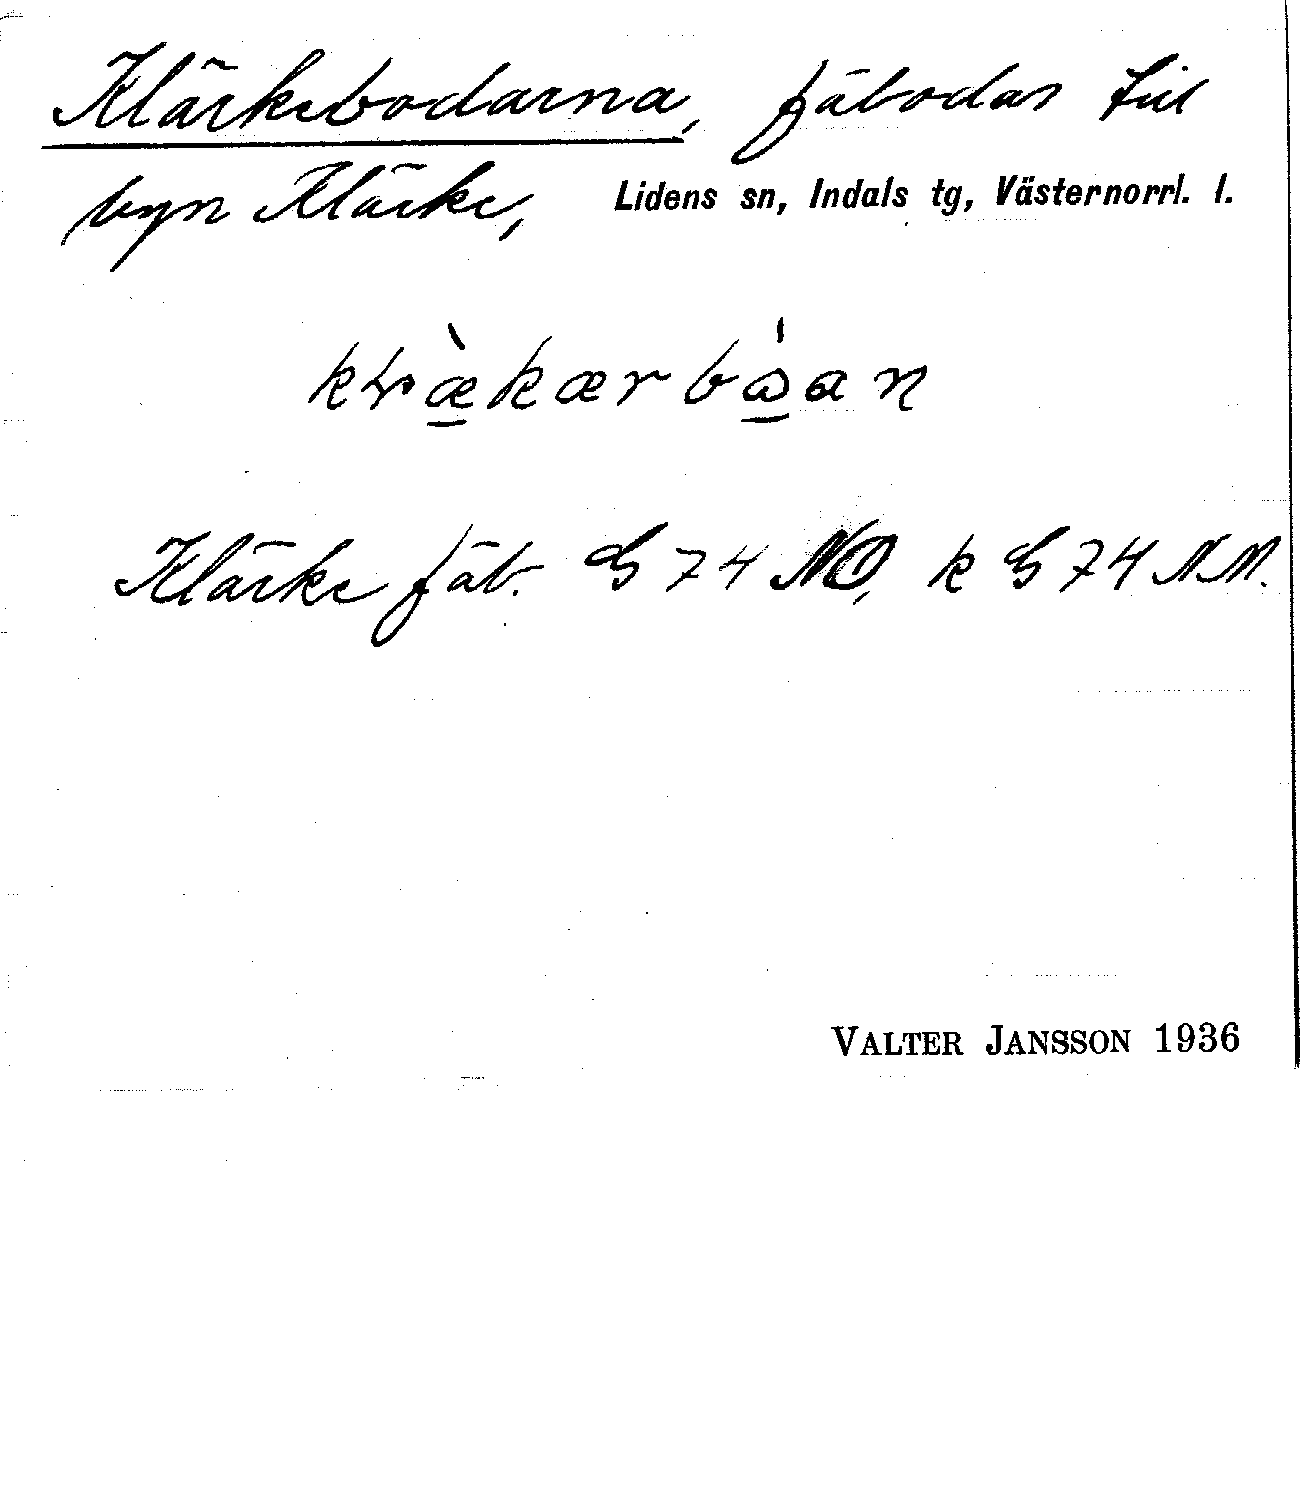 Klärkebodarna, fäbodar till
byn Klärke, Lidens sn, Indals tg, Västernorrl. l.
Klärke fäb. G 74 NO, k G 74 NM.
VALTER JANSSON 1936